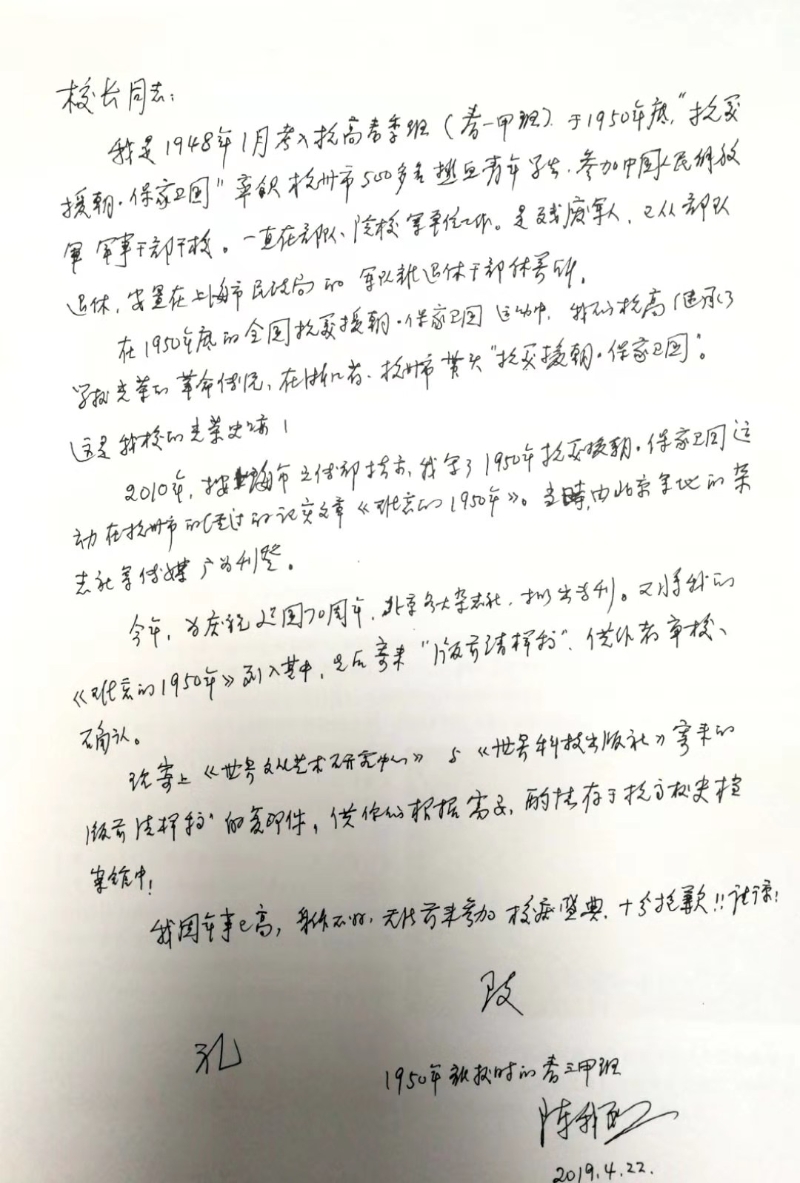 校长同志：
我是1948年1月考入杭高春季班（春一甲班）于1950年底，"抗美
援朝·保家卫国"率领杭州市500多名热血青年学生，参加中国人民解放
军军事干部干校。一直在部队、院校军事位工作。是残废军人，已从部队
退休，安置在上海市民政局的军队离退休干部休养所。
在1950年底的全国抗美援朝·保家卫国运动中，我们杭高继承了
学校光荣的革命传统，在浙江省、杭州市带头"抗美援朝·保家卫国"。
这是我校的光荣史啊！
2010年，按上海市宣传部指示，我写了1950年抗美援朝·保家卫国运
动在杭州市的经过的记实文章《难忘的1950年》。当时，由北京等地的杂
志社等传媒广为刊登。
今年，为庆祝建国70周年，北京各大杂志社，拟出专刊。又将我的
《难忘的1950年》列入其中，先后寄来"版前清样稿"，供作者审校、
确认。
现寄上《世界文化艺术研究中心》与《世界科技出版社》寄来的
版前清样稿"的复印件，供你们根据需要，酌情存于杭高校史档
案馆中！
我因年事已高，身体不好，无法前来参加校庆盛典，十分抱歉！！请谅！
致
礼
1950年离校时的春三甲班
陈
2019.4.22.